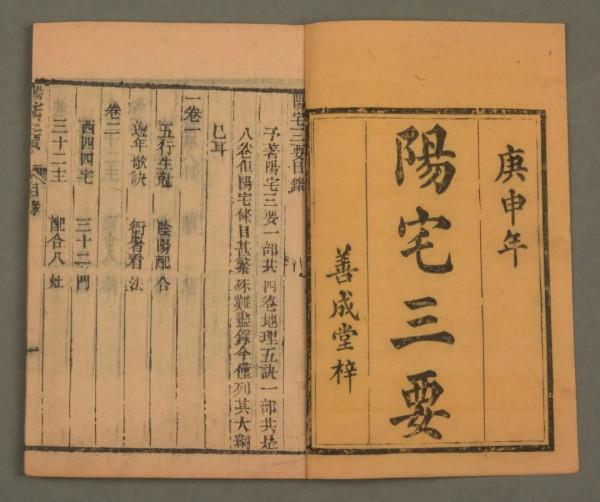 庚申年
陽宅三要
善成堂梓
陽宅三要目錄
予著陽宅三要一部共四卷地理五訣一部共是
八卷但陽宅條目甚繁殊難盡錄今僅列其大綱
已耳
一卷一
五行生尅 陰陽配合
遊年歌訣 術者看法
卷二
西四四宅 三十二門
三十二主 配合八灶
陽宅三要 目錄 一